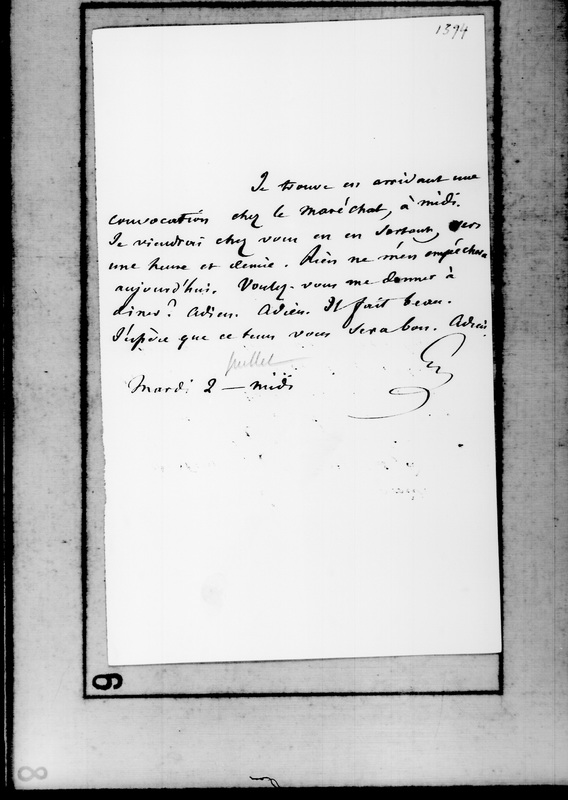 1394
Je trouve en arrivant une
convocation chez le Maréchal, à midi.
Je viendrai chez vous en en sortant, vers
une heure et demie. Rien ne m'en empêchera
aujourd'hui. Voulez-vous me donner à
diner? Adieu. Adieu. Il fait beau.
J'espère que ce tems vous sera bon. Adieu.
juillet
Mardi 2 — midi
6
8